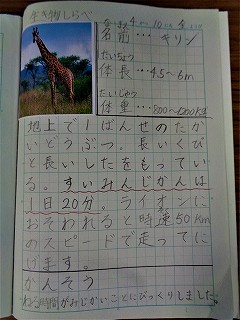 生き物しらべ
名前…キリン
たいちょう
体長…4.5〜6m
たいじゅう
体重…800〜1200kg
地上で1ばんせのたか
いどうぶつ。長いくび
と長いしたをもってい
る。すいみんじかんは
1日20分。ライオンに
おそわれると時速50Km
のスピードで走ってに
げます。
かんそう
ねる時間がみじかいことにびっくりしました。